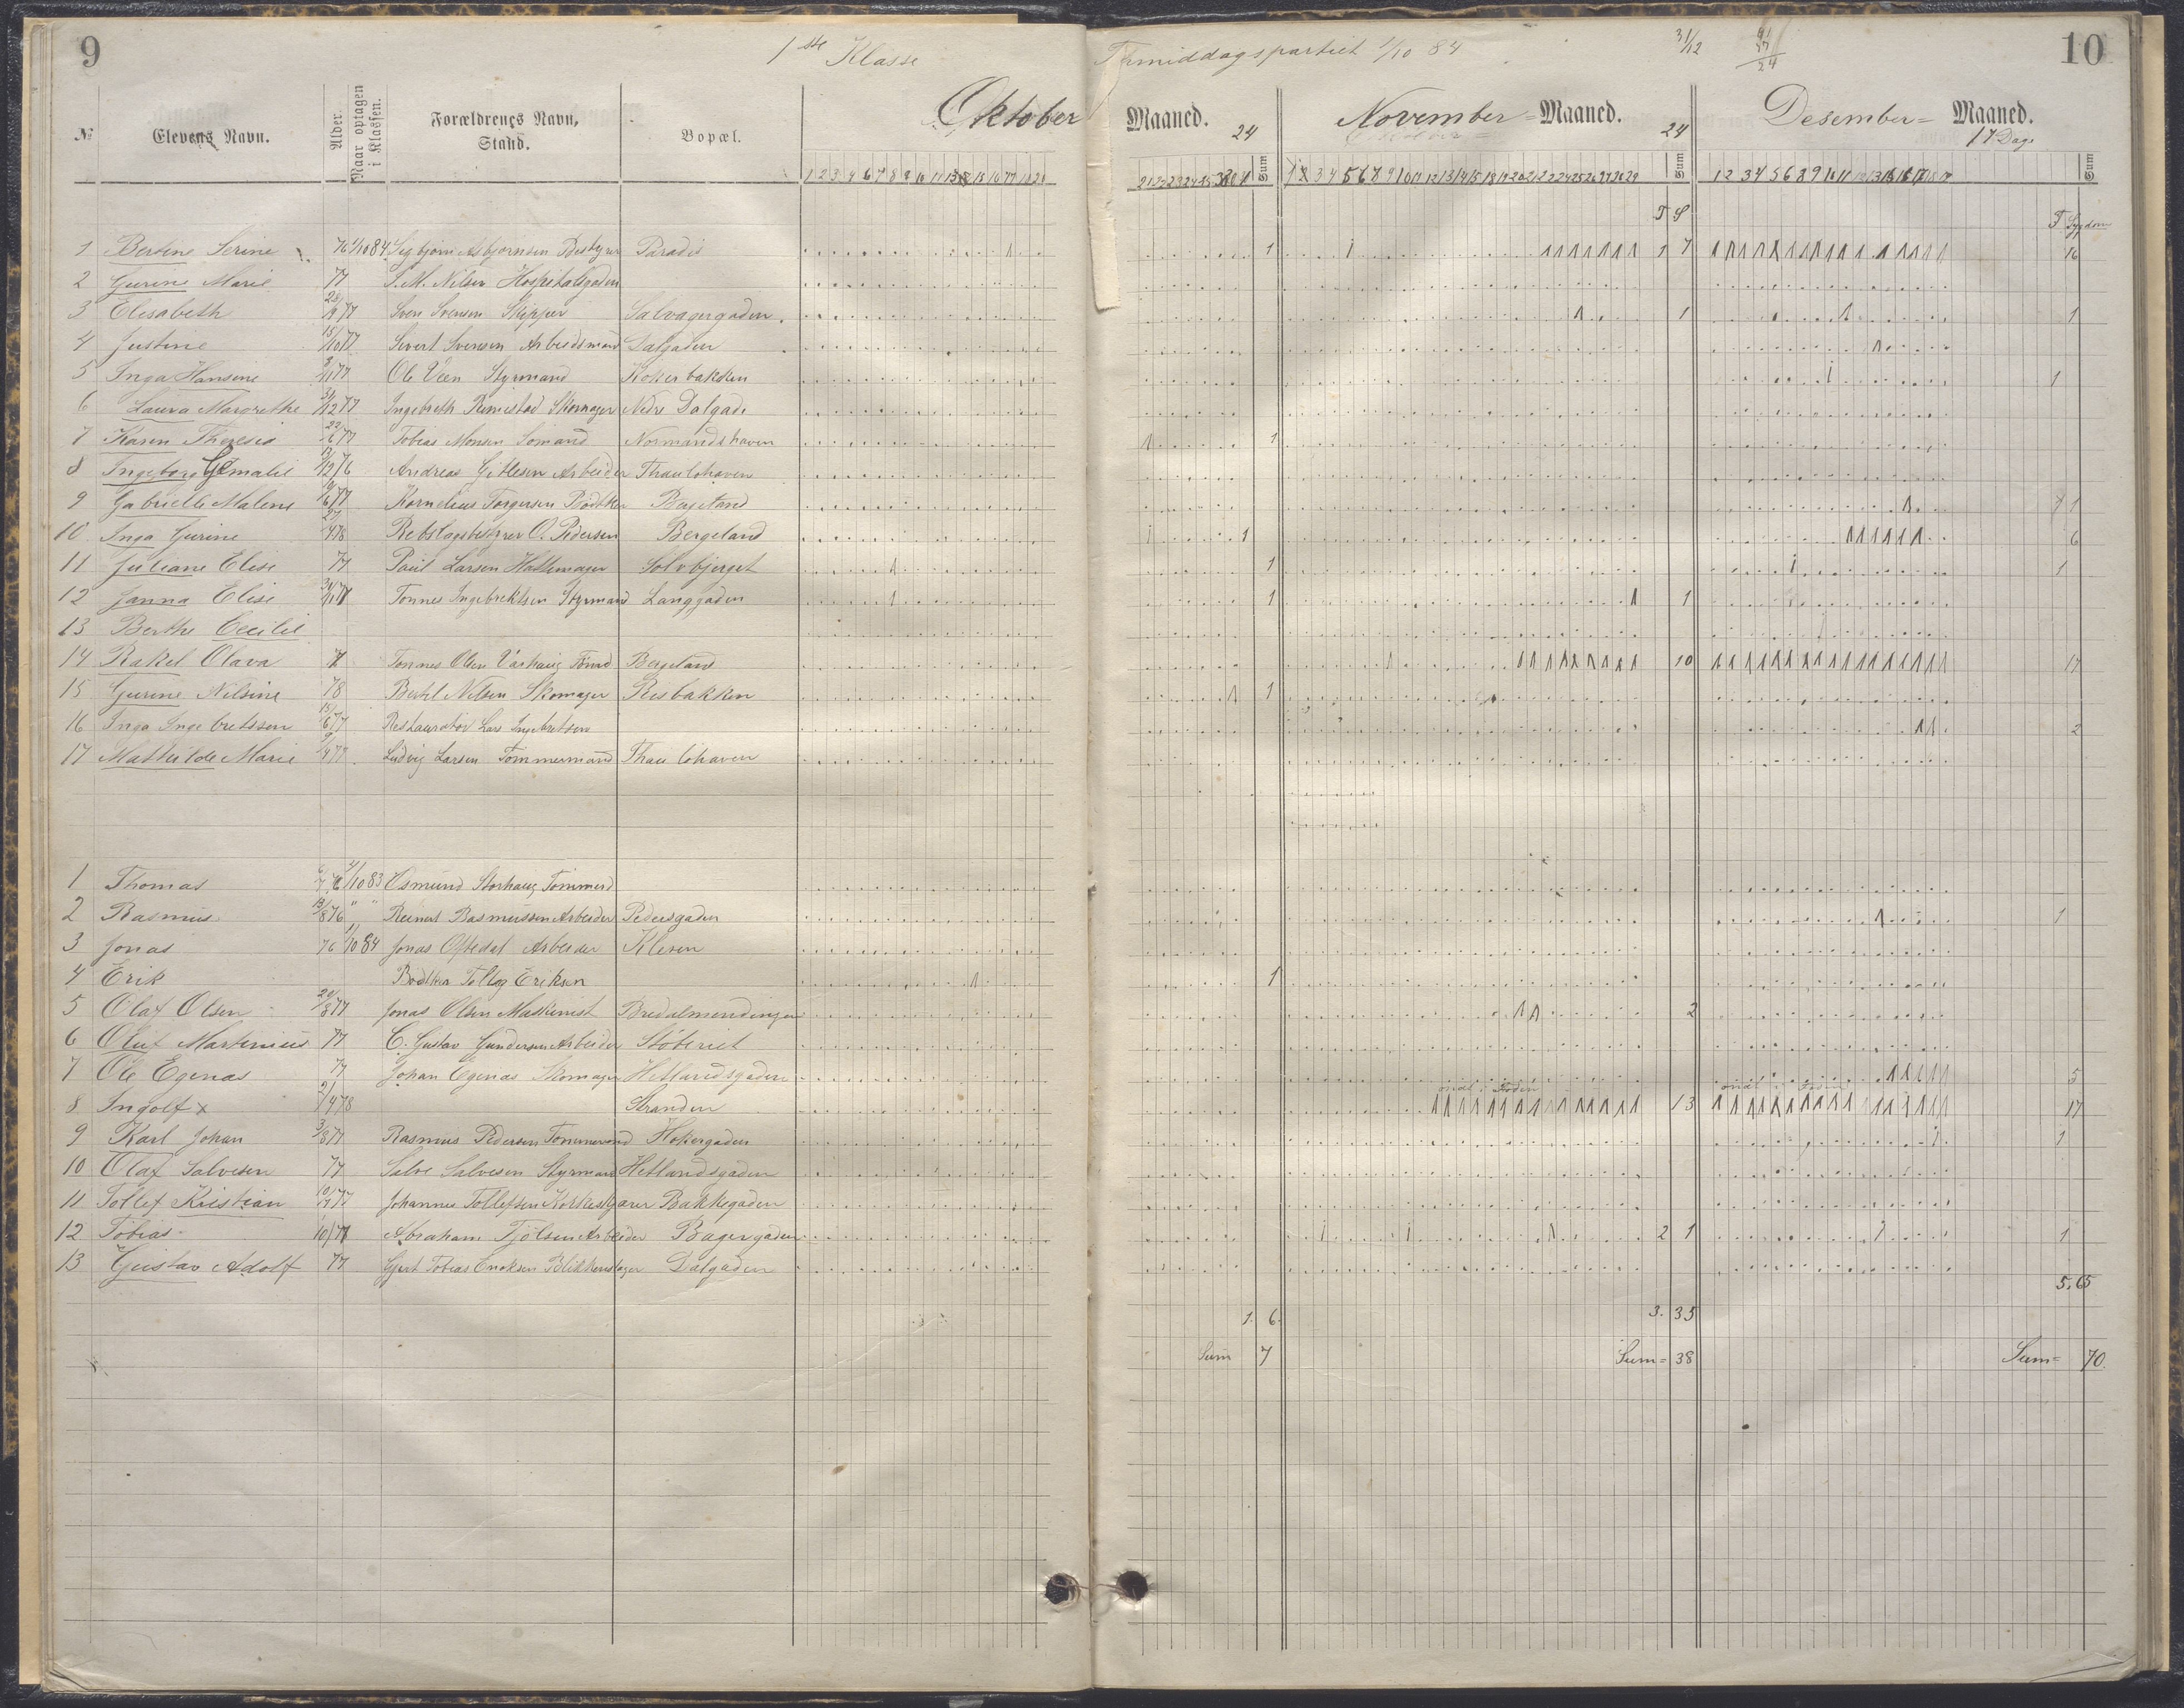 9
1ste Klasse
Formiddagspartiet 1/10 84
31/12
41
17
24
10
№
Elevens Navn.
Alder.
Naar optagen i Klassen.
Forældrenes Navn, Stand.
Bopæl.
Oktober Maaned. 24
November Maaned. 24
Desember Maaned. 17 Dage
Sum
Sum
Sum
T S
T Sygdom
1 Bertine Serine 76 1/10 84 Sigbjørn Asbjørnsen Bestyrer Paradis 1 1 7 16
2 Gurine Marie 77 S. M. Nilsen Hospitalsgaden
3 Elisabeth 77 Sven Svensen Skipper Salvagergaden 1 1
4 Justine 15/10 77 Sivert Svensen Arbeidsmand Dalgaden
5 Inga Hansine 77 Ole Veen Styrmand Kokerbakken 1
6 Laura Margrethe 31/12 77 Ingebreth Rimestad Skomager Nedre Dalgade
7 Karen Theresia 22/6 77 Tobias Monsen Sømand Normandshaven 1
8 Ingeborg Amalie 12/12 76 Andreas Gitlesen Arbeider Thaulohaven
9 Gabrielle Malene 77 Kornelius Torgersen Bødtker Bergeland 1
10 Inga Gurine 27/4 78 Rebslagsbestyrer O. Pedersen Bergeland 1 6
11 Juliane Elise 77 Paul Larsen Hattemager Solvbjerget 1 1
12 Janna Elise Tonnes Ingebrektsen Styrmand Langgaden 1 1
13 Berthe Cecilie
14 Rakel Olava Tonnes Olsen Varhaug Tømd Bergeland 10 17
15 Gurine Nilsine 78 Bertil Nilsen Skomager Risbakken 1
16 Inga Ingebretssen 15/6 77 Restauratør Lars Ingebretsen 2
17 Mathilde Marie Ludvig Larsen Tømmermand Thaulohaven
1 Thomas 76 1/10 83 Osmund Storhaug Tømmerd
2 Rasmus 13/8 76 " " Reinert Rasmussen Arbeider Pedersgaden 1
3 Jonas 76 1/10 84 Jonas Oftedal Arbeider Kleven
4 Erik Bødtker Tollag Eriksen 1
5 Olaf Olsen 20/8 77 Jonas Olsen Maskinist Bredalmendingen 2
6 Oluf Martinius 77 C. Gustav Gundersen Arbeider Støberiet
7 Ole Egenæs 77 Johan Egenæs Skomager Hetlandsgaden 5
ondt i Foden
ondt i Foden
8 Ingolf x 2/4 78 Stranden 13 17
9 Karl Johan 3/8 77 Rasmus Pedersen Tømmermand Hokergaden 1
10 Olaf Salvesen 77 Salve Salvesen Styrmand Hetlandsgaden
11 Tollef Kristian 77 Johannes Tollefsen Bakkegaden
12 Tobias Abraham Tjølsen Arbeider Bagergaden 2 1 1
13 Gustav Adolf 77 Gjert Tobias Enoksen Blikkenslager Dalgaden
5. 65
1. 6.
3. 35
Sum 7
Sum = 38
Sum = 70.